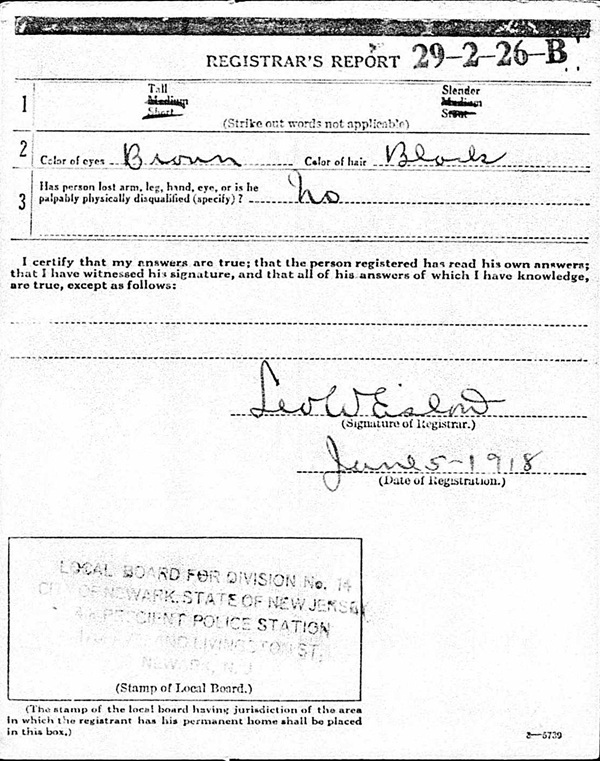 REGISTRAR'S REPORT 29-2-26-B
1 Tall Medium Short Slender Medium Stout
(Strike out words not applicable)
2 Color of eyes Brown Color of hair Black
3 Has person lost arm, leg, hand, eye, or is he
palpably physically disqualified (specify)? No
I certify that my answers are true; that the person registered has read his own answers;
that I have witnessed his signature, and that all of his answers of which I have knowledge,
are true, except as follows:
Leo W
(Signature of Registrar.)
June 5-1918
(Date of Registration.)
LOCAL BOARD FOR DIVISION No. 14
CITY OF NEWARK, STATE OF NEW JERSEY
PRECINCT POLICE STATION
AND LIVINGSTON ST.
NEWARK, N. J
(Stamp of Local Board.)
(The stamp of the local board having jurisdiction of the area
in which the registrant has his permanent home shall be placed
in this box.)
3—5739